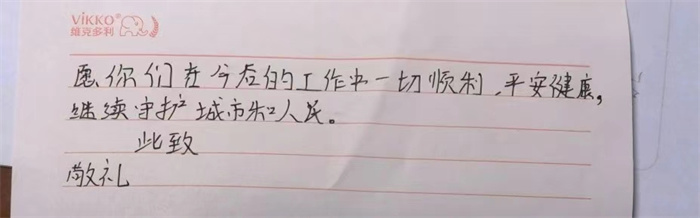 VIKKO®
维克多利
愿你们在今后的工作中一切顺利,平安健康,
继续守护城市和人民。
此致
敬礼